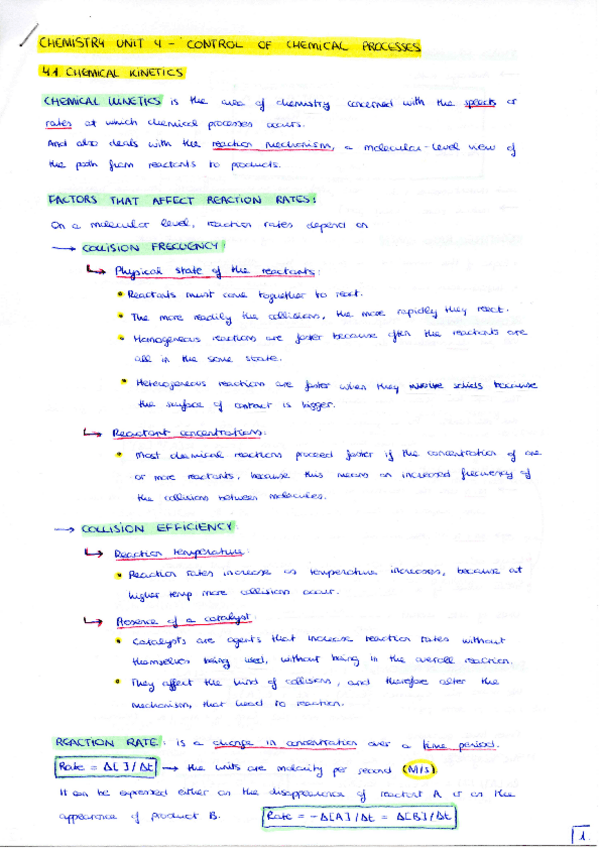 CHEMISTRY UNIT 4 - CONTROL OF CHEMICAL PROCESSES
4.1 CHEMICAL KINETICS
CHEMICAL KINETICS is the area of chemistry concerned with the speeds or
rates at which chemical processes occurs.
And also deals with the reaction mechanism, a molecular-level view of
the path from reactants to products.
FACTORS THAT AFFECT REACTION RATES:
On a molecular level, reaction rates depend on
→ COLLISION FRECUENCY:
↳ Physical state of the reactants:
• Reactants must come toguether to react.
• The more readily the collisions, the more rapidly they react.
• Homogeneous reactions are faster because often the reactants are
all in the same state.
• Heterogeneous reactions are faster when they involve solids because
the surface of contact is bigger.
↳ Reactant concentrations:
• Most chemical reactions proceed faster if the concentration of one
or more reactants, because this means an increased frecuency of
the collisions between molecules.
→ COLLISION EFFICIENCY
↳ Reaction temperature:
• Reaction rates increase as temperature increases, because at
higher temp more collisions occur.
↳ Presence of a catalyst:
• Catalysts are agents that increase reaction rates without
themselves being used, without being in the overall reaction.
• They affect the kind of collisions, and therefore alter the
mechanism, that lead to reaction.
REACTION RATE: is a change in concentration over a time period.
Rate = Δ[ ]/Δt → the units are molarity per second (M/s)
It can be expressed either on the disappearance of reactant A or on the
appearance of product B. Rate = -Δ[A]/Δt = Δ[B]/Δt
1